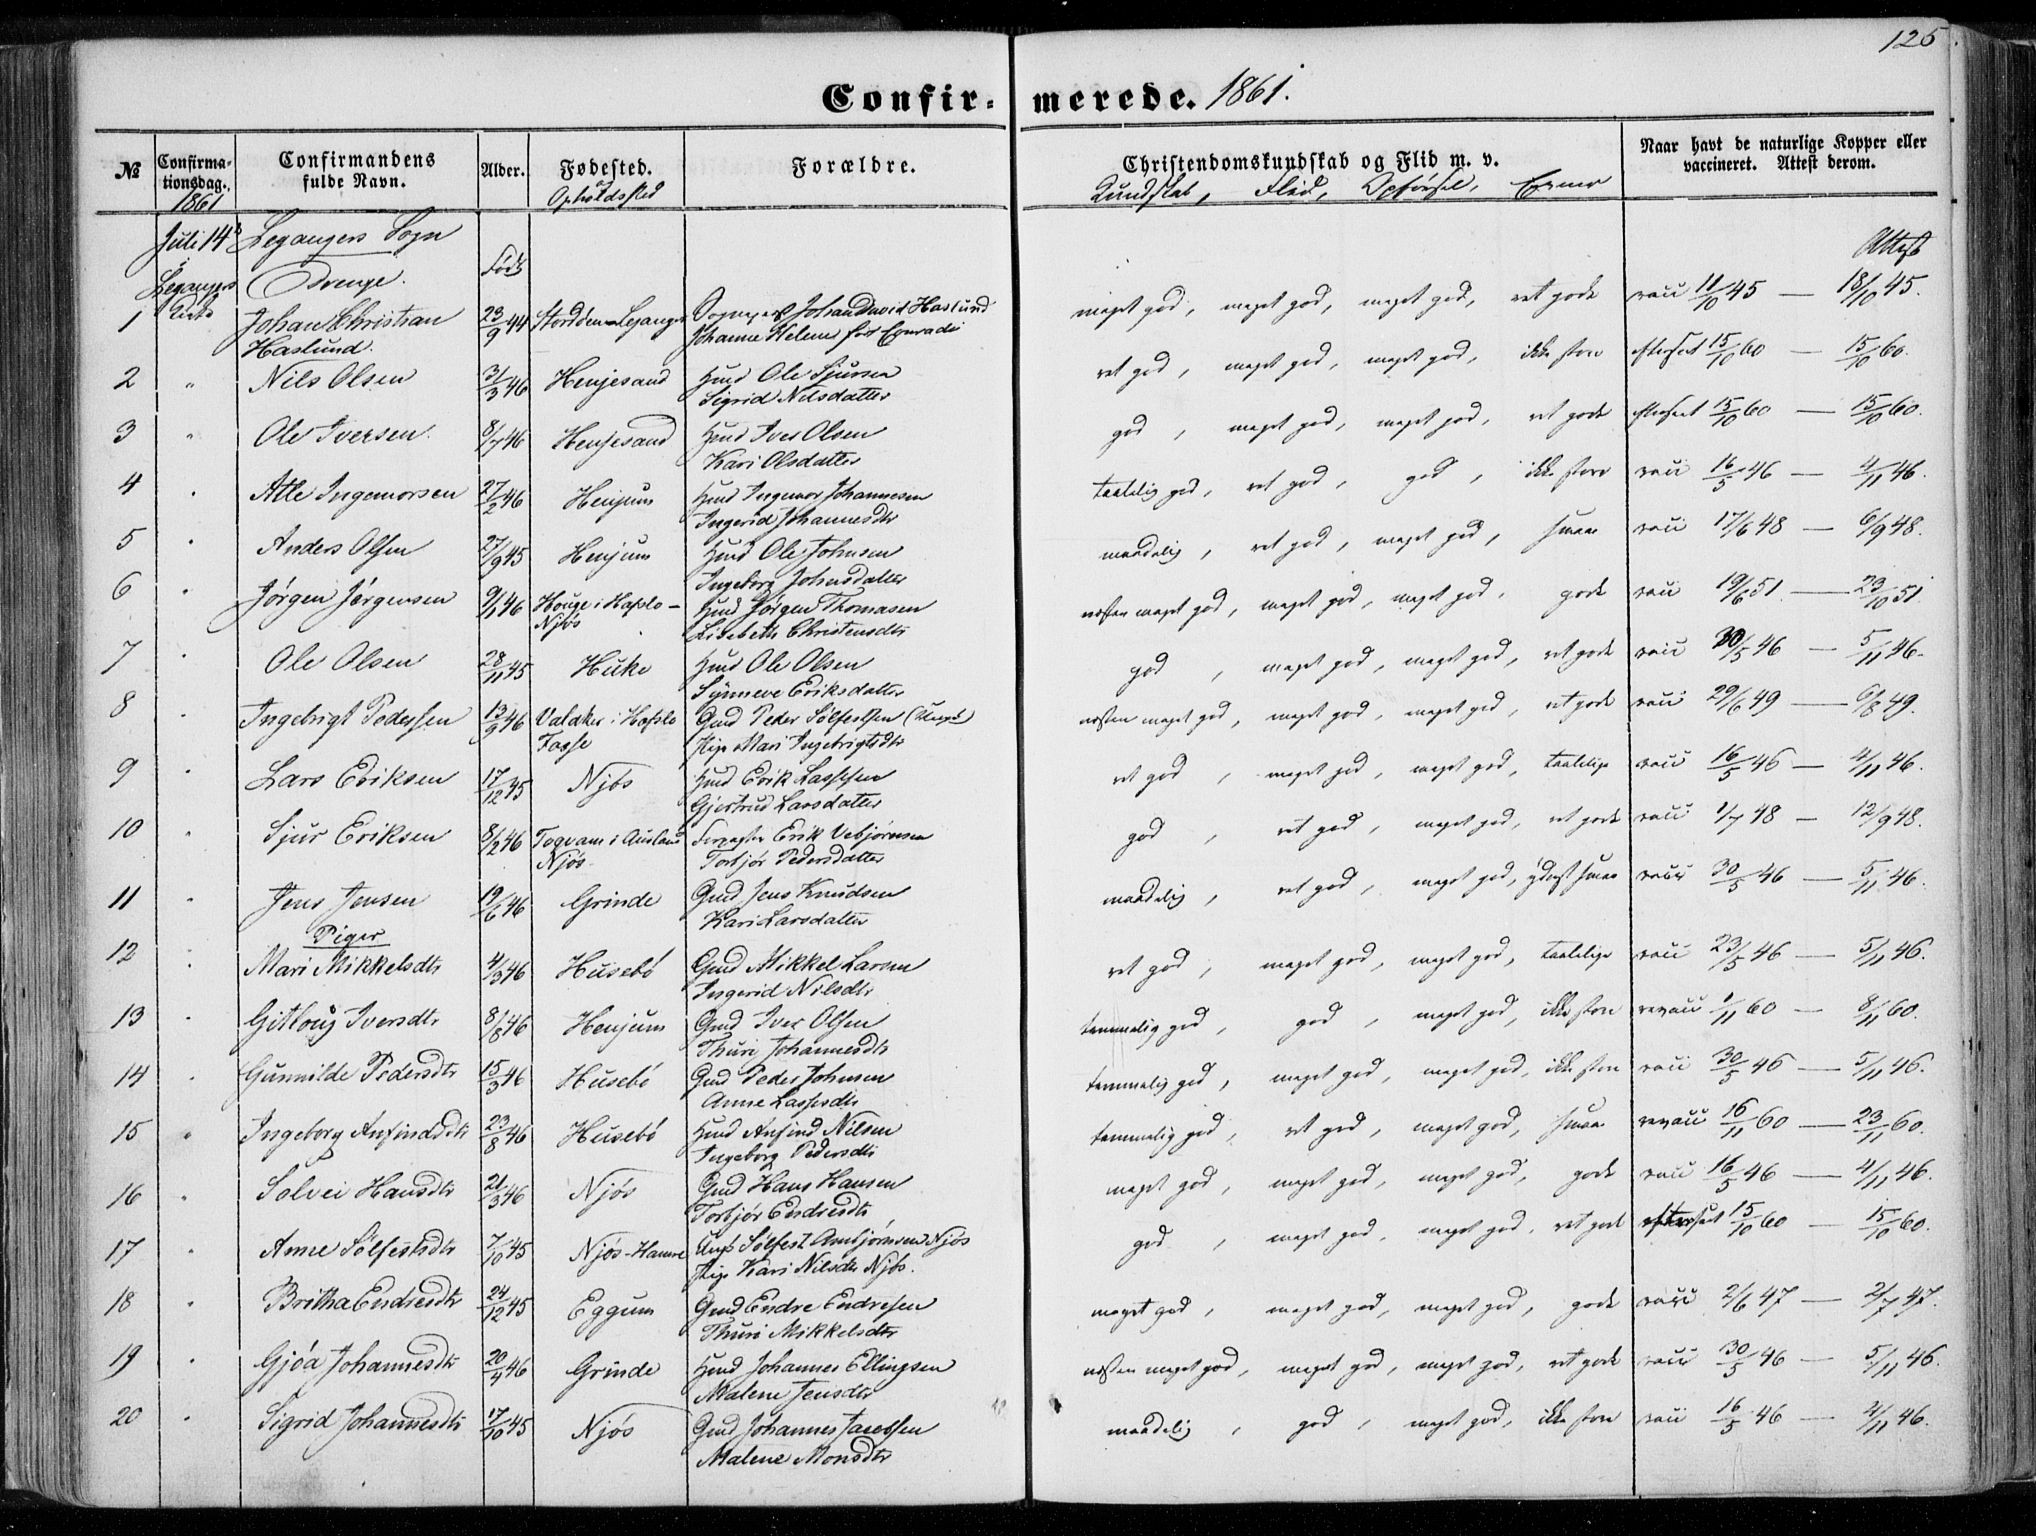 125
Confirmerede. 1861.
№ Confirmationsdag. Confirmandens fulde Navn. Alder. Fødested. Forældre. Christendomskundskab og Flid m. v. Naar havt de naturlige Kopper eller vaccineret. Attest derom.
1861 Opholdssted Kundskab, Flid, Opførsel, Evner
Juli 14 Leganger Sogn Født Attest
Leganger Kirke Drenge.
1 Johan Christian Haslund. 23/9 44 Leganger Johan David Haslund Johanne Helene født Conradi meget god, meget god, meget god, ret gode vacc 11/10 45 — 18/10 45.
2 " Nils Olsen 31/3 46 Henjesand Hmd Ole Sjursen Sigrid Nilsdatter ret god, meget god, meget god, ikke store 15/10 60 — 15/10 60.
3 " Ole Iversen. 8/7 46 Henjesand Hmd Iver Olsen Kari Olsdatter god, meget god, meget god, ret gode 15/10 60 — 15/10 60.
4 " Atle Ingemorsen 27/2 46 Henjum Hmd Ingemor Johannesen Ingerid Johannesdtr taalelig god, ret god, god, ikke store vacc 16/5 46 — 4/11 46.
5 " Anders Olsen 27/9 45 Henjum Hmd Ole Johnsen Ingeborg Johnsdatter maadelig, ret god, meget god, smaa vacc 17/6 48 — 6/9 48.
6 " Jørgen Jørgensen 9/1 46 Houge i Hafslo – Njøs Hmd Jørgen Thomasen Lisebeth Christensdtr næsten meget god, meget god, meget god, gode vacc 19/6 51 — 23/10 51
7 " Ole Olsen 28/11 45 Huke Hmd Ole Olsen Synneve Eriksdatter god, meget god, meget god, ret gode vacc 30/5 46 — 5/11 46.
8 " Ingebrigt Pedersen 13/9 46 Valaker i Hafslo Fosse Gmd Peder Sølfestsen Pige Mari Ingebrigtsdtr næsten meget god, meget god, meget god, ret gode vacc 29/6 49 — 6/8 49.
9 " Lars Eriksen 17/12 45 Njøs Hmd Erik Lassesen Gjertrud Larsdatter ret god, meget god, meget god, taalelige vacc 16/5 46 — 4/11 46.
10 " Sjur Eriksen 8/2 46 i Aurland Njøs Forpagter Erik Vebjørnsen Torbjør Pedersdatter god, ret god, meget god, ret gode vacc 1/7 48 — 12/9 48.
11 " Jens Jensen 19/6 46 Grinde Gmd Jens Knudsen Kari Larsdatter maadelig, ret god, meget god, yderst smaa vacc 30/5 46 — 5/11 46.
Piger
12 " Mari Mikkelsdtr 4/3 46 Husebø Gmd Mikkel Larsen Ingerid Nilsdtr ret god, meget god, meget god, taalelige vacc 23/5 46 — 5/11 46.
13 " Gitloug Iversdtr 8/8 46 Henjum Gmd Iver Olsen Thuri Johannesdtr temmelig god, god, meget god, ikke store revacc 1/11 60 — 8/11 60.
14 " Gunnilde Pedersdtr 15/3 46 Husebø Gmd Peder Johnsen Anne Lassesdtr temmelig god, meget god, meget god, ikke store vacc 30/5 46 — 5/11 46.
15 " Ingeborg Anfindsdtr 23/8 46 Husebø Hmd Anfind Nilsen Ingeborg Pedersdtr temmelig god, ret god, meget god, smaa revacc 16/11 60 — 23/11 60.
16 " Solvei Hansdtr 21/3 46 Njøs Gmd Hans Hansen Torbjør Endresdtr meget god, meget god, meget god, gode vacc 16/5 46 — 4/11 46.
17 " Anne Sølfestsdtr 7/10 45 Njøs-Hamre Sølfest Arnbjørnsen Njøs Pige Kari Nilsdtr Njøs. god, meget god, meget god, ret gode 15/10 60 — 15/10 60.
18 " Britha Endresdtr 24/12 45 Eggum Gmd Endre Endresen Thuri Mikkelsdtr meget god, meget god, meget god, gode vacc 2/6 47 — 2/7 47.
19 " Gjøa Johannesdtr 20/4 46 Grinde Hmd Johannes Ellingsen Malene Jensdtr næsten meget god, meget god, meget god, ret gode vacc 30/5 46 — 5/11 46.
20 " Sigrid Johannesdtr 17/10 45 Njøs Gmd Johannes Jacobsen Malene Monsdtr maadelig, god, meget god, ikke store vacc 16/5 46 — 4/11 46.